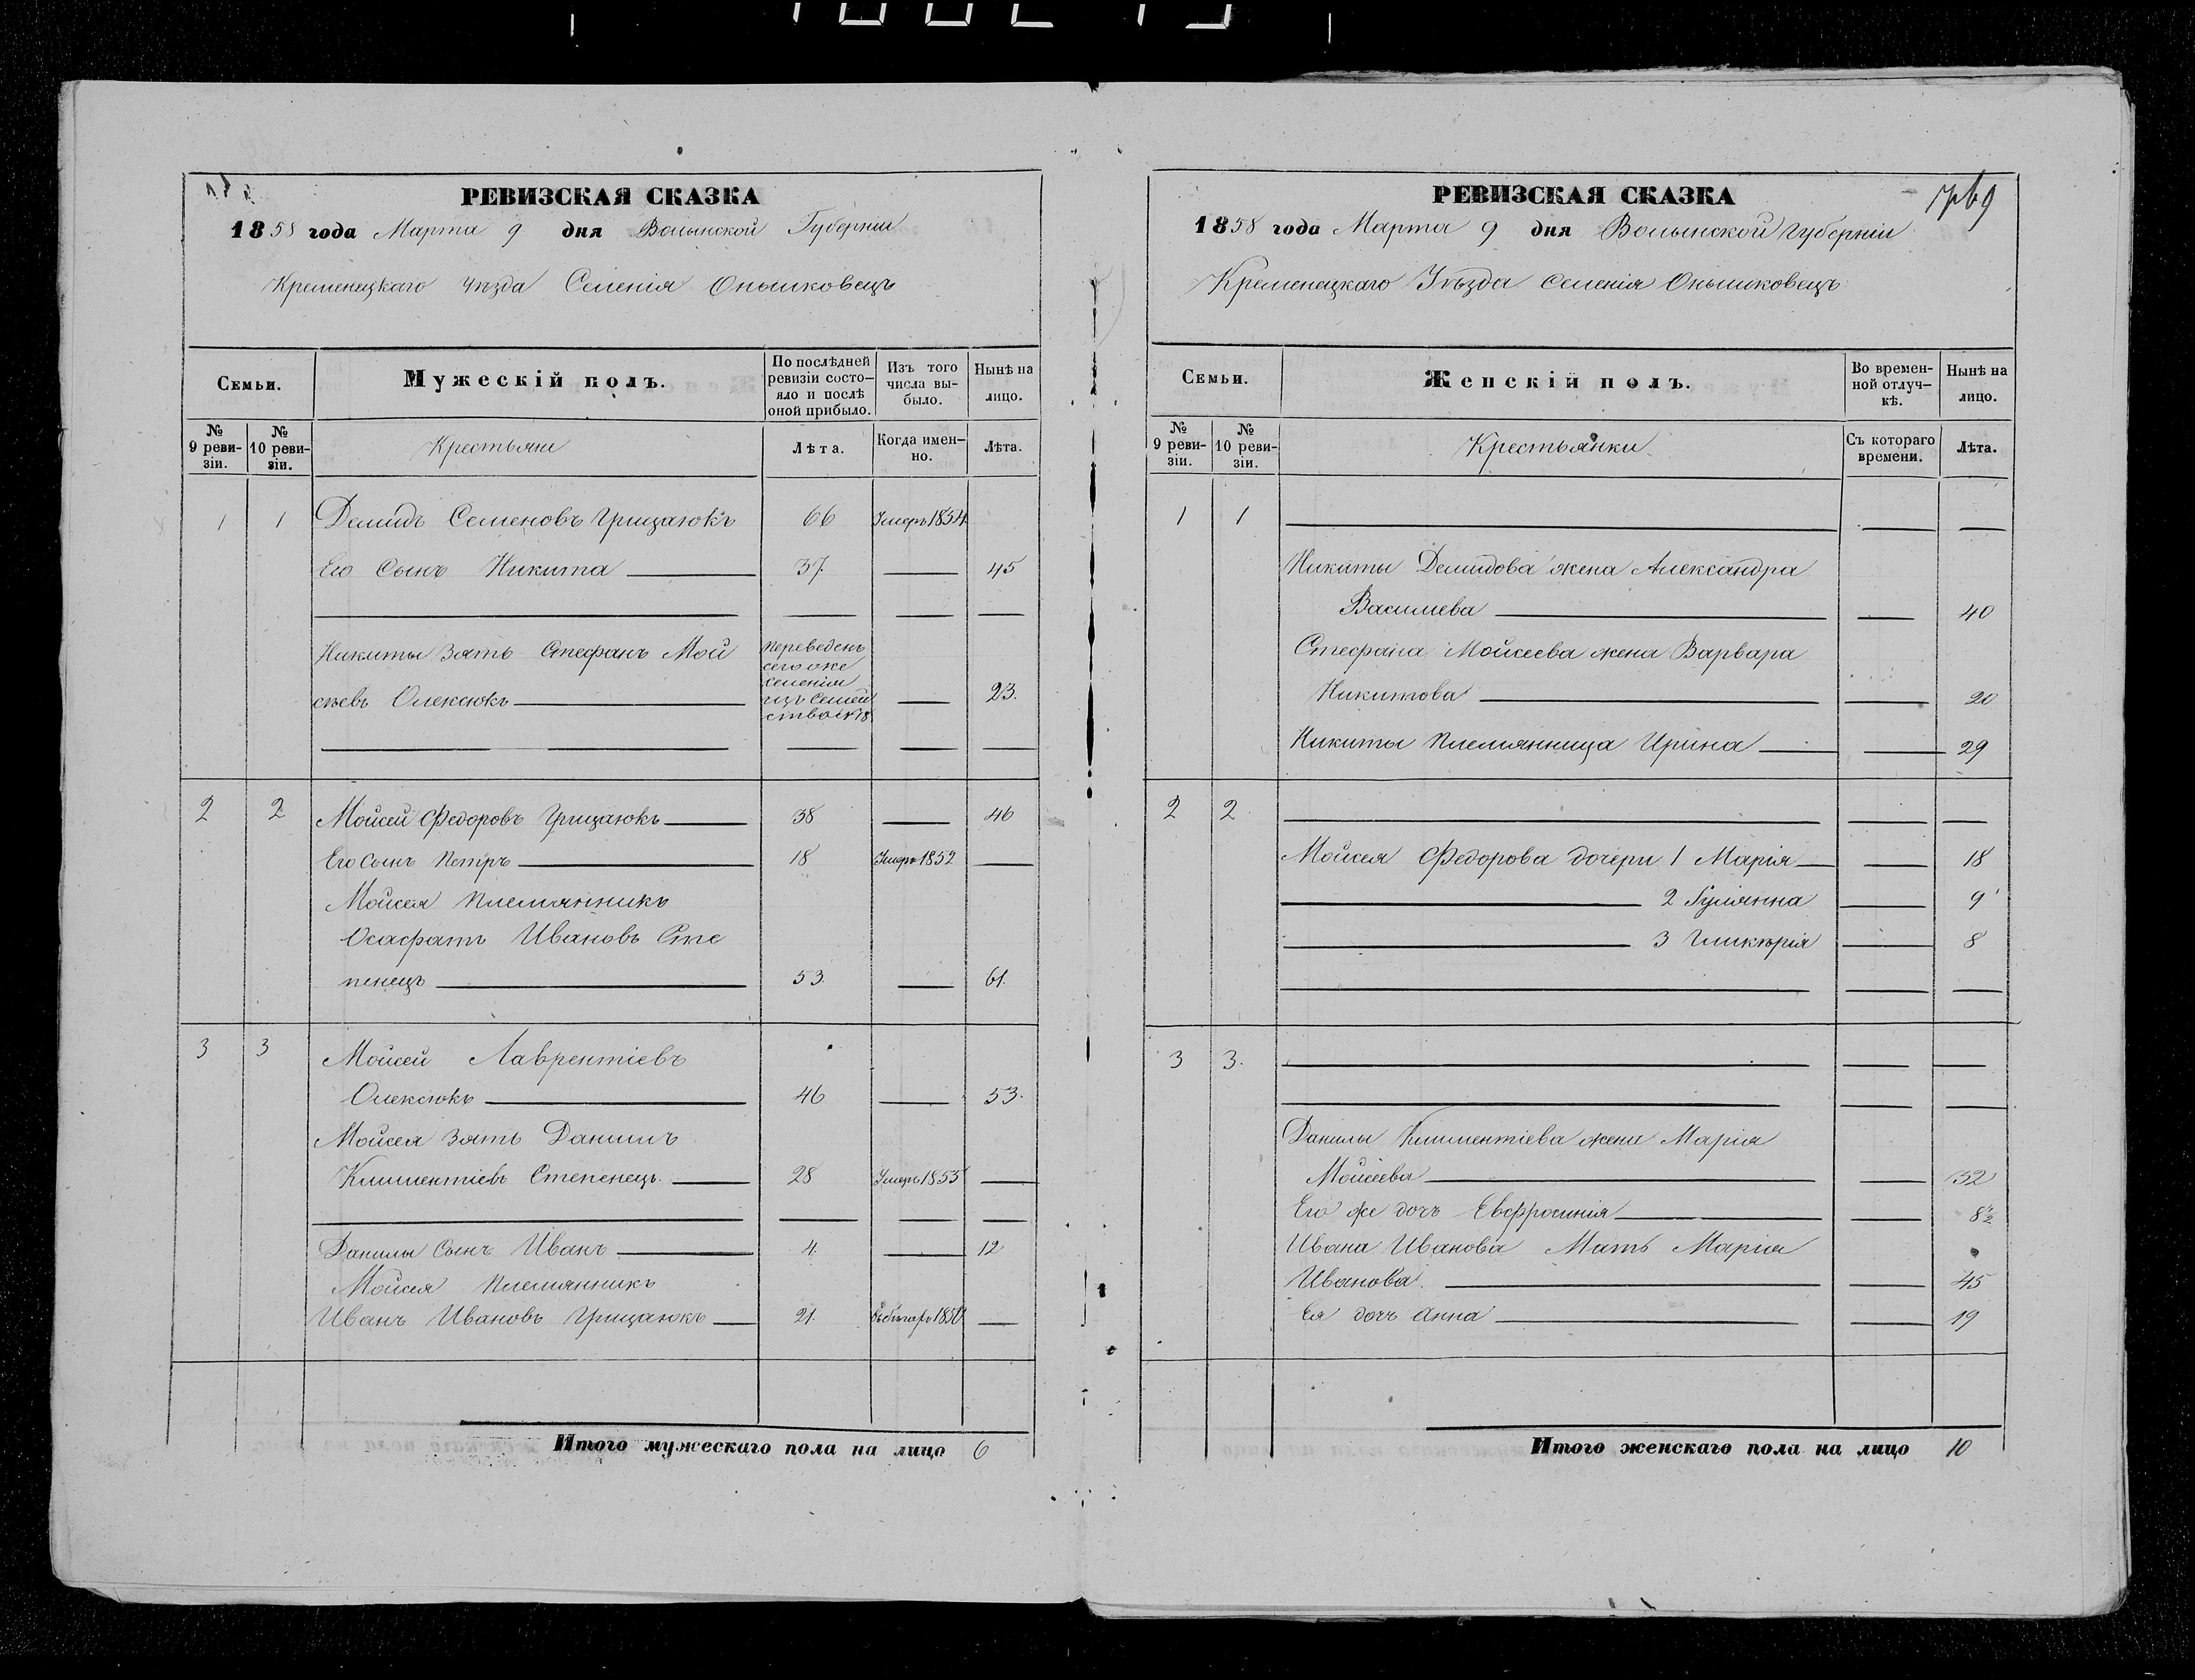 РЕВИЗСКАЯ СКАЗКА
1858 года Марта 9 дня Волынской Губерніи
Кременецкаго уѣзда Селенія Онышковецъ
Семьи.
Мужескій полъ.
По послѣдней
ревизіи состо-
яло и послѣ
оной прибыло.
Изъ того
числа вы-
было.
Нынѣ на
лицо.
№
9 реви-
зіи.
№
10 реви-
зіи.
Крестьяне
Лѣта.
Когда имен-
но.
Лѣта.
1 1 Демидъ Семеновъ Грицаюкъ 66 Умеръ 1854
Его Сынъ Никита 37 45
Никиты Зять Стефанъ Мой
сѣевъ Олексюкъ 23.
переведенъ
сего же
селенія
изъ Семей
ства №18
2 2 Мойсей Федоровъ Грицаюкъ 38 46
Его Сынъ Петръ 18 Умеръ 1852
Мойсея племянникъ
Осафатъ Ивановъ Сте
пенецъ 53. 61.
3 3 Мойсей Лаврентіевъ
Олексюкъ 46 53.
Мойсея Зять Данилъ
Климентіевъ Степенецъ. 28 Умеръ 1855
Данилы Сынъ Иванъ 4. 12
Мойсея племянникъ
Иванъ Ивановъ Грицаюкъ 21.
Итого мужескаго пола на лицо 6
РЕВИЗСКАЯ СКАЗКА
1858 года Марта 9 дня Волынской Губерніи
Кременецкаго Уѣзда Селенія Онышковецъ
Семьи.
Женскій полъ.
Во времен-
ной отлуч-
кѣ.
Нынѣ на
лицо.
№
9 реви-
зіи.
№
10 реви-
зіи.
Крестьянки
Съ котораго
времени.
Лѣта.
1 1
Никиты Демидова жена Александра
Василиева 40
Стефана Мойсеева жена Варвара
Никитова 20
Никиты племянница Ирина 29
2 2.
Мойсея Федорова дочери 1 Марія 18
2 Гулянна 9
3 Гликѣрія 8
3 3.
Данилы Климентіева жена Марія
Мойсеева 32
Его же дочь Евфросинія 8½
Ивана Иванова Мать Марія
Иванова 45
Ея дочь Анна 19
Итого женскаго пола на лицо 10